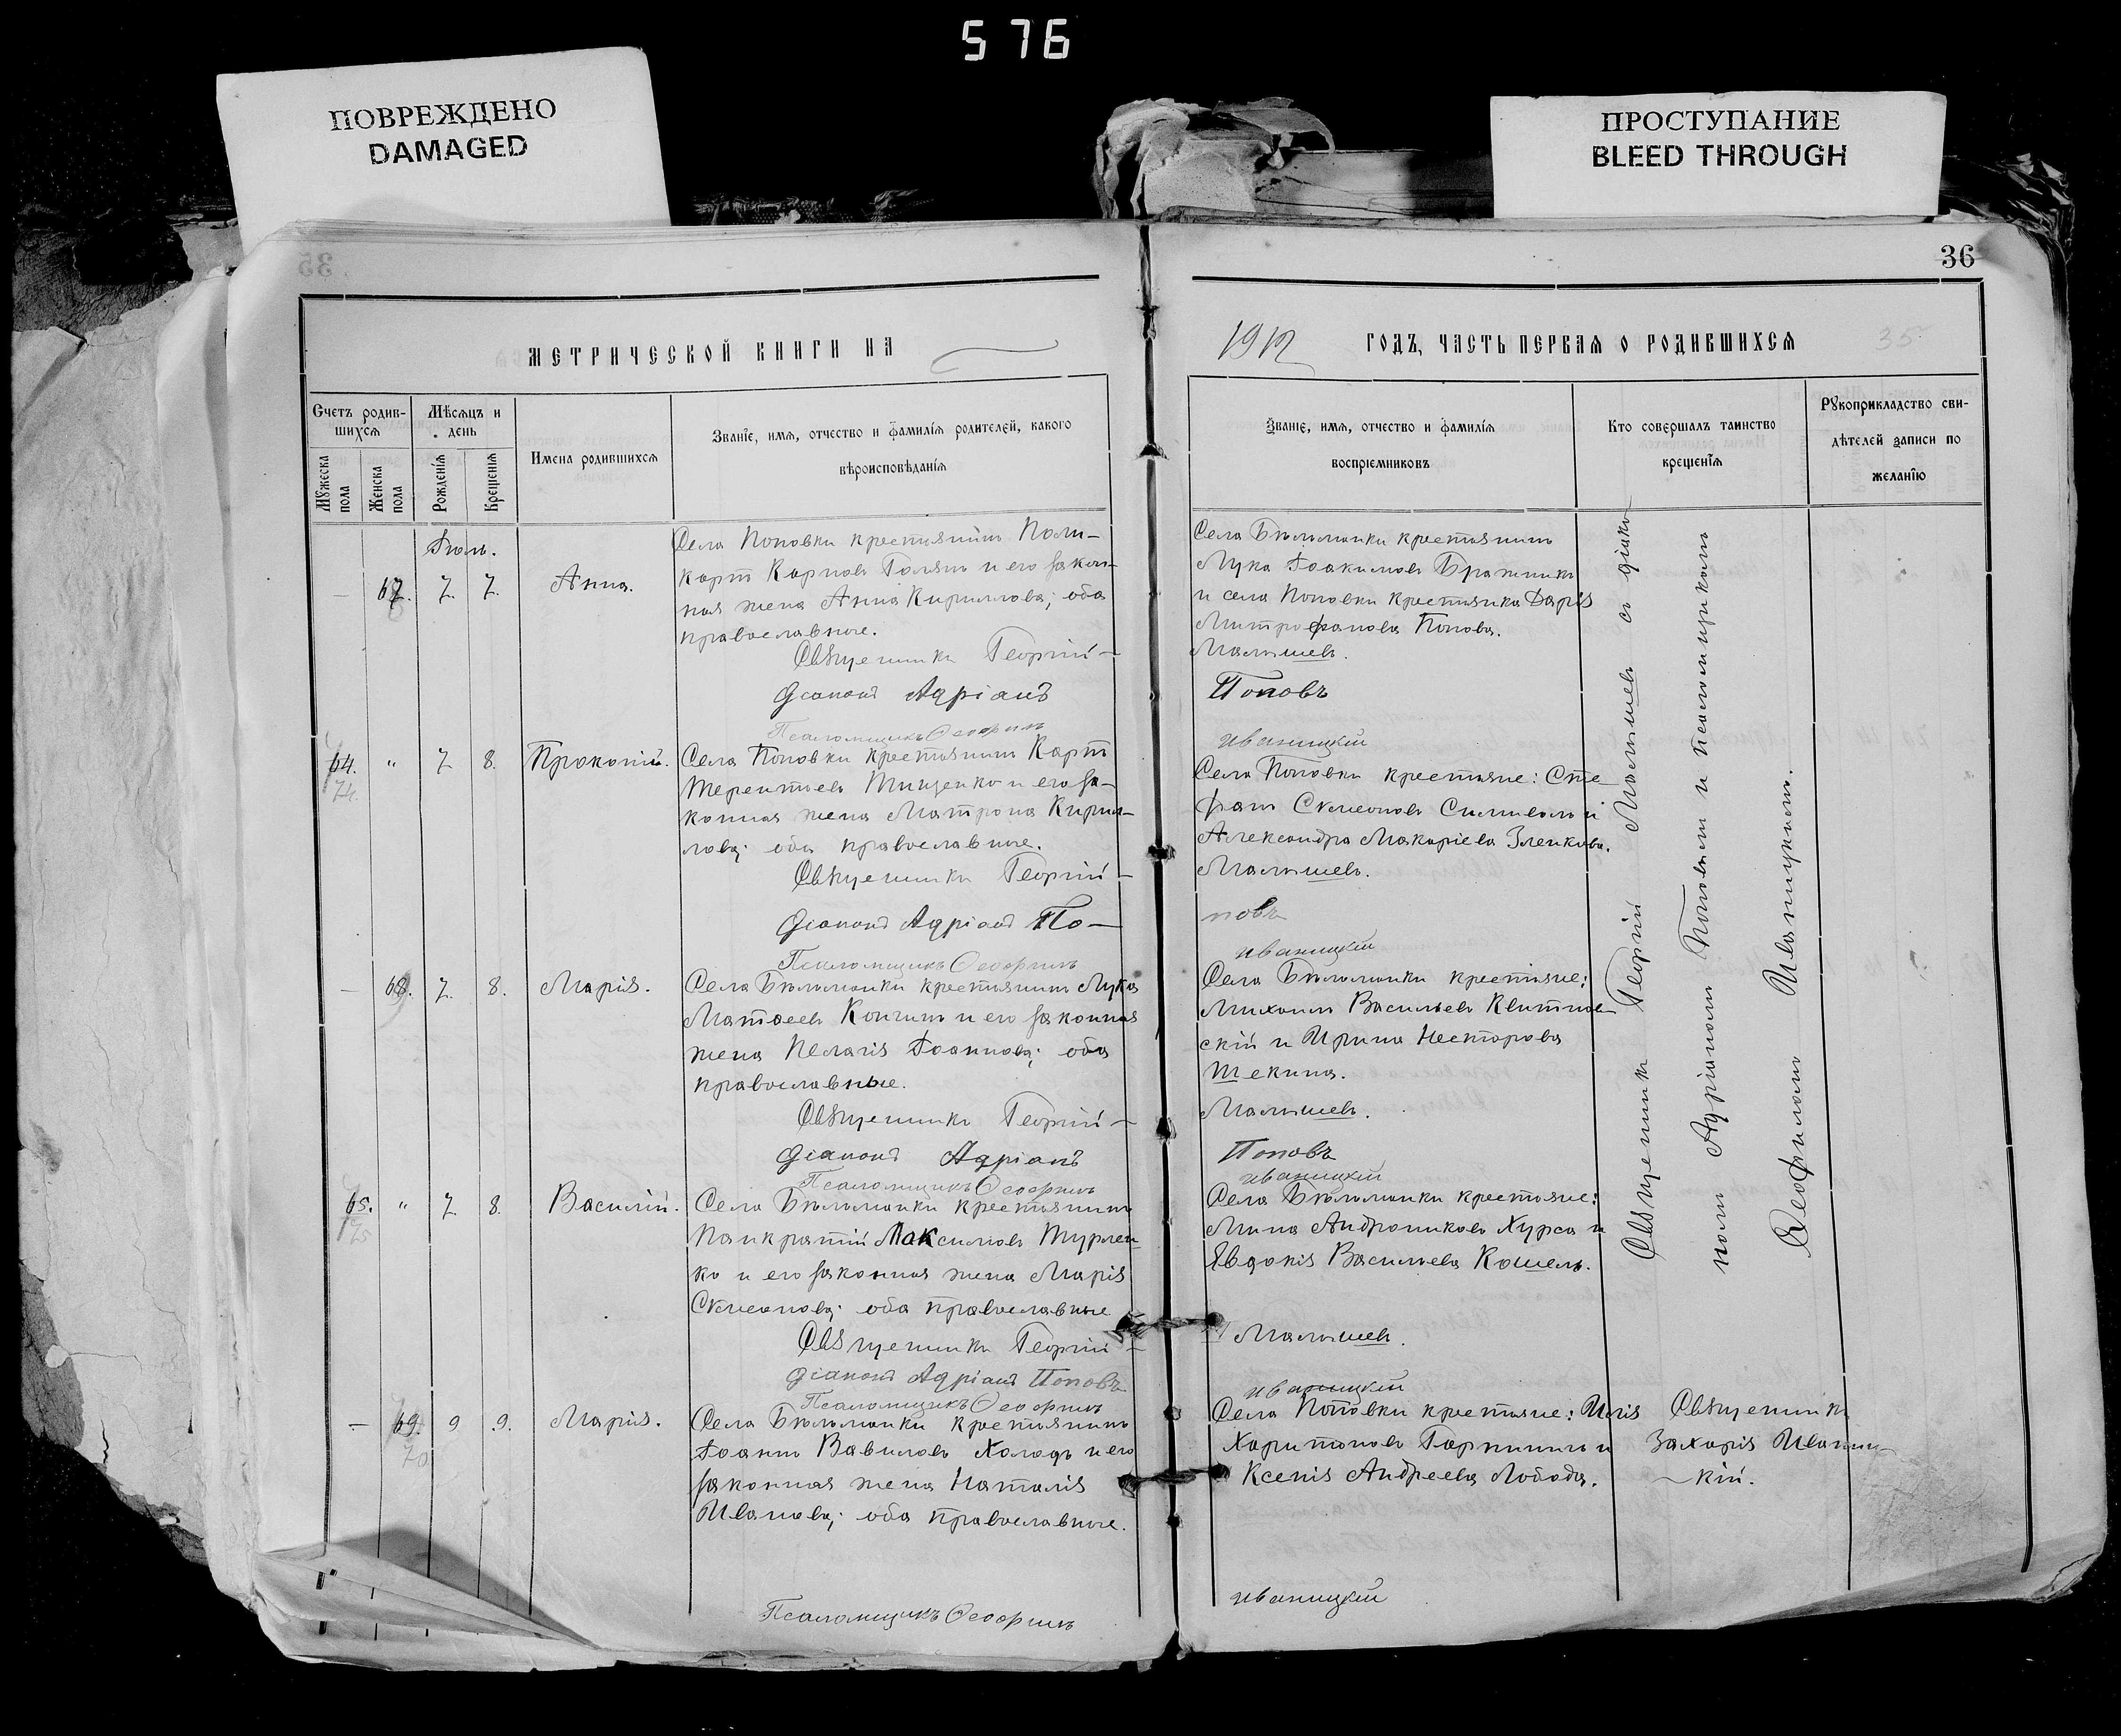 576
ПОВРЕЖДЕНО
DAMAGED
ПРОСТУПАНИЕ
BLEED THROUGH
35
36
МЕТРИЧЕСКОЙ КНИГИ НА
1912 ГОДЪ, ЧАСТЬ ПЕРВАЯ О РОДИВШИХСЯ
35
Счетъ родив-
шихся
Мѣсяцъ и
день
Мужеска
пола
Женска
пола
Рожденія
Крещенія
Имена родившихся
Званіе, имя, отчество и фамилія родителей, какого
вѣроисповѣданія
Званіе, имя, отчество и фамилія
воспріемниковъ
Кто совершалъ таинство
крещенія
Рукоприкладство сви-
дѣтелей записи по
желанію
Іюль.
— 67. 7. 7. Анна.
Села Поповки крестьянинъ Поли-
карпъ Карповъ Голякъ и его закон-
ная жена Анна Кириллова; оба
православные.
Священникъ Георгій —
Діаконъ Адріанъ
Псаломщикъ Ѳеофилъ
Села Бѣльманки крестьянинъ
Лука Іоакимовъ Бражникъ
и села Поповки крестьянка Дарія
Митрофанова Попова.
Малышевъ.
Поповъ
Иваницкій
64. " 7 8. Прокопій.
74.
Села Поповки крестьянинъ Карпъ
Терентьевъ Тищенко и его за-
конная жена Матрона Кирил-
лова; оба православные.
Священникъ Георгій —
Діаконъ Адріанъ По—
Псаломщикъ Ѳеофилъ
Села Поповки крестьяне: Сте-
фанъ Симеоновъ и
Александра Макаріева
Малышевъ.
повъ
Иваницкій
— 68. 7. 8. Марія.
Села Бѣльманки крестьянинъ Лука
Матѳеевъ и его законная
жена Пелагія Іоаннова; оба
православные.
Священникъ Георгій —
Діаконъ Адріанъ
Псаломщикъ Ѳеофилъ
Села Бѣльманки крестьяне:
Михаилъ Васильевъ Квитнов-
скій и Ирина Несторова
Шекина.
Малышевъ.
Поповъ
Иваницкій
65. " 7. 8. Василій.
75
Села Бѣльманки крестьянинъ
Панкратій Максимовъ Турлен-
ко и его законная жена Марія
Симеонова; оба православные
Священникъ Георгій —
Діаконъ Адріанъ Поповъ
Псаломщикъ Ѳеофилъ
Села Бѣльманки крестьяне:
Мина Андрониковъ Хурса и
Евдокія Васильева Кошель.
Малышевъ.
Иваницкій
— 69. 9 9. Марія.
70
Села Бѣльманки крестьянинъ
Іоаннъ Вавиловъ Холодъ и его
законная жена Наталія
Иванова; оба православные.
Псаломщикъ Ѳеофилъ
Села Поповки крестьяне: Илія
Харитоновъ и
Ксенія Андреева Лобода.
Иваницкій
Священникъ Георгій Малышевъ съ діако-
номъ Адріаномъ Поповымъ и псаломщикомъ
Ѳеофиломъ Иваницкимъ.
Священникъ
Захарія Иваниц-
—кій.